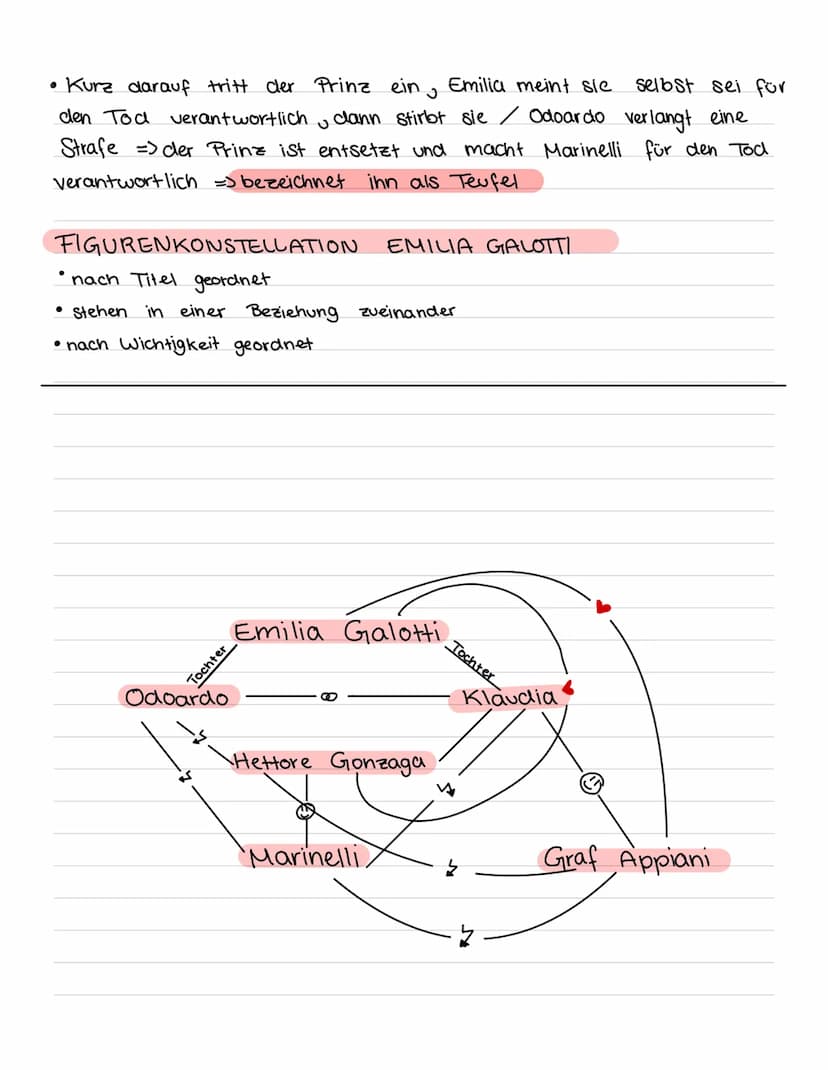 • Kurz darauf tritt der Prinz ein, Emilia meint sie selbst sei für
den Tod verantwortlich, dann stirbt sie / Odoardo verlangt eine
Strafe => der Prinz ist entsetzt und macht Marinelli für den Tod
verantwortlich => bezeichnet ihn als Teufel
FIGURENKONSTELLATION EMILIA GALOTTI
• nach Titel geordnet
• stehen in einer Beziehung zueinander
• nach Wichtigkeit geordnet
Emilia Galotti
Tochter
Tochter
Odoardo
Klaudia
Hettore Gonzaga
Marinelli
Graf Appiani